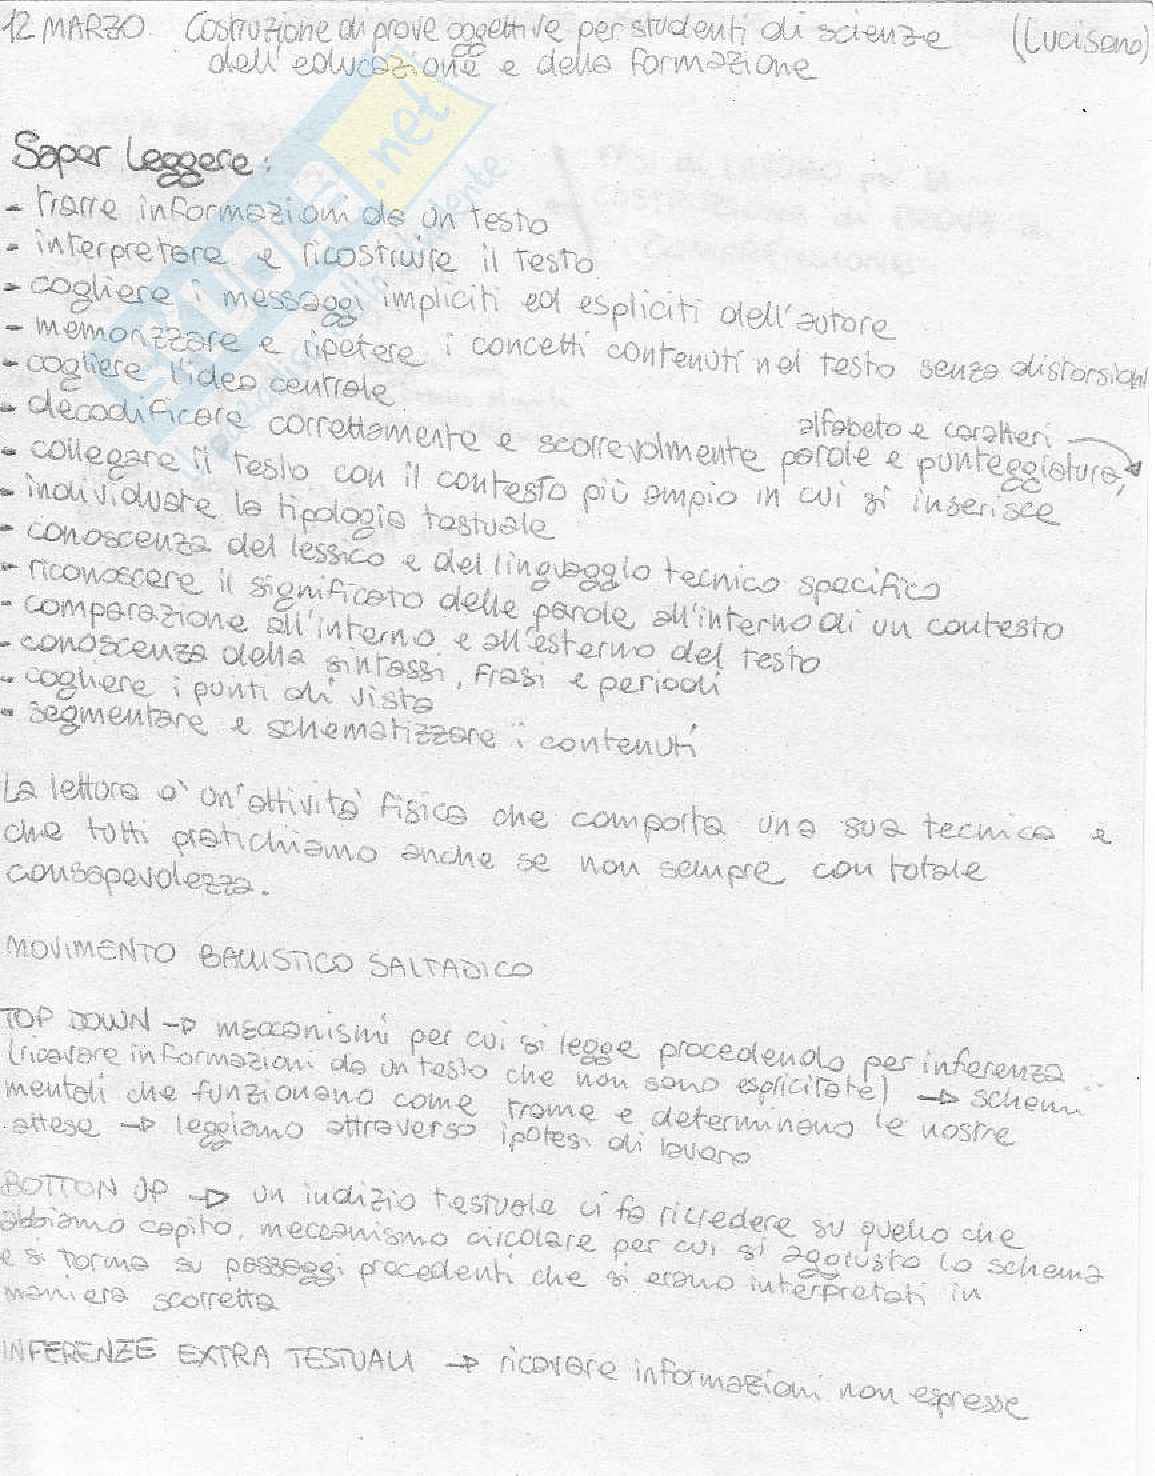 12 MARZO. Costruzione di prove oggettive per studenti di scienze (Lucisano)
dell'educazione e della formazione
Saper leggere:
- trarre informazioni da un testo
- interpretare e ricostruire il testo
- cogliere i messaggi impliciti ed espliciti dell'autore
- memorizzare e ripetere i concetti contenuti nel testo senza distorsioni
- cogliere l'idea centrale
- decodificare correttamente e scorrevolmente parole e punteggiatura,
alfabeto e caratteri
- collegare il testo con il contesto più ampio in cui si inserisce
- individuare la tipologia testuale
- conoscenza del lessico e del linguaggio tecnico specifico
- riconoscere il significato delle parole all'interno di un contesto
- comparazione all'interno e all'esterno del testo
- conoscenza della sintassi, frasi e periodi
- cogliere i punti di vista
- segmentare e schematizzare i contenuti
La lettura è un'attività fisica che comporta una sua tecnica e
che tutti pratichiamo anche se non sempre con totale
consapevolezza.
MOVIMENTO BALLISTICO SALTADICO
TOP DOWN → meccanismi per cui si legge procedendo per inferenza
(ricavare informazioni da un testo che non sono esplicitate) → schemi
mentali che funzionano come trame e determinano le nostre
attese → leggiamo attraverso ipotesi di lavoro
BOTTON UP → un indizio testuale ci fa ricredere su quello che
abbiamo capito, meccanismo circolare per cui si aggiusta lo schema
e si torna su passaggi precedenti che si erano interpretati in
maniera scorretta
INFERENZE EXTRA TESTUALI → ricavare informazioni non espresse